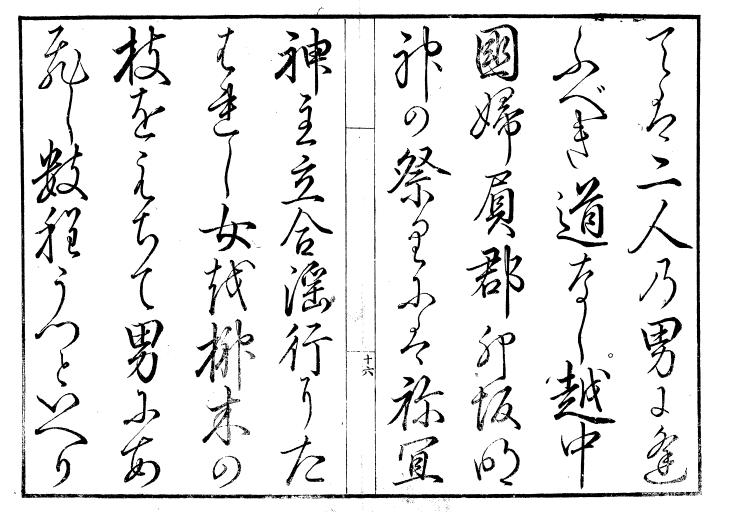 てハ二人乃男に逢
ふべき道なし。越中
國婦屓郡卯坂明
神の祭りには祢宜
神主立合滛行りた
はれし女越榊木の
枝をもちて男にあ
飛し数程うつといへり
十六